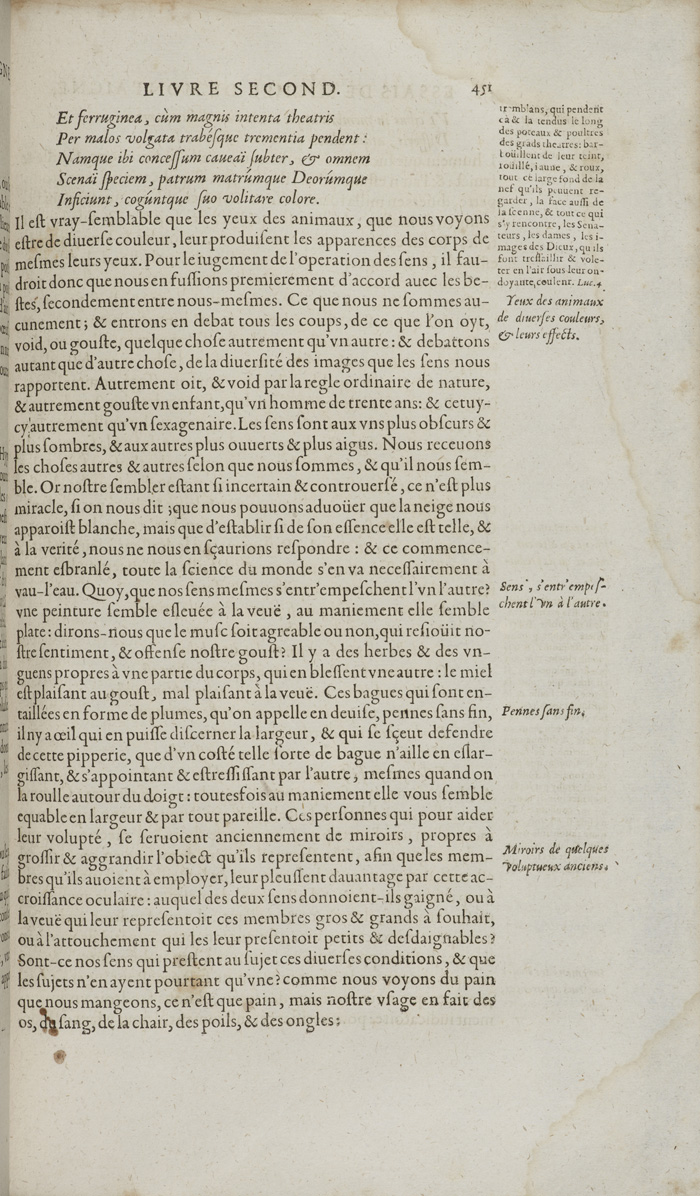 LIVRE SECOND. 451
Et ferruginea, cùm magnis intenta theatris
Per malos volgata trabésque trementia pendent:
Namque ibi concessum caueai subter, & omnem
Scenai speciem, patrum matrúmque Deorúmque
Inficiunt, cogúntque suo volitare colore.
Il est vray-semblable que les yeux des animaux, que nous voyons
estre de diuerse couleur, leur produisent les apparences des corps de
mesmes leurs yeux. Pour le iugement de l'operation des sens, il fau-
droit donc que nous en fussions premierement d'accord auec les be-
stes, secondement entre nous-mesmes. Ce que nous ne sommes au-
cunement; & entrons en debat tous les coups, de ce que l'on oyt,
void, ou gouste, quelque chose autrement qu'vn autre: & debattons
autant que d'autre chose, de la diuersité des images que les sens nous
rapportent. Autrement oit, & void par la regle ordinaire de nature,
& autrement gouste vn enfant, qu'vn homme de trente ans: & cetuy-
cy autrement qu'vn sexagenaire. Les sens sont aux vns plus obscurs &
plus sombres, & aux autres plus ouuerts & plus aigus. Nous receuons
les choses autres & autres selon que nous sommes, & qu'il nous sem-
ble. Or nostre sembler estant si incertain & controuersé, ce n'est plus
miracle, si on nous dit; que nous pouuons aduoüer que la neige nous
apparoist blanche, mais que d'establir si de son essence elle est telle, &
à la verité, nous ne nous en sçaurions respondre: & ce commence-
ment esbranlé, toute la science du monde s'en va necessairement à
vau-l'eau. Quoy, que nos sens mesmes s'entr'empeschent l'vn l'autre?
vne peinture semble esleuée à la veuë, au maniement elle semble
plate: dirons-nous que le musc soit agreable ou non, qui resioüit no-
stre sentiment, & offense nostre goust? Il y a des herbes & des vn-
guens propres à vne partie du corps, qui en blessent vne autre: le miel
est plaisant au goust, mal plaisant à la veuë. Ces bagues qui sont en-
taillées en forme de plumes, qu'on appelle en deuise, pennes sans fin,
il n'y a œil qui en puisse discerner la largeur, & qui se sçeut defendre
de cette pipperie, que d'vn costé telle sorte de bague n'aille en eslar-
gissant, & s'appointant & estressissant par l'autre, mesmes quand on
la roulle autour du doigt: toutesfois au maniement elle vous semble
equable en largeur & par tout pareille. Ces personnes qui pour aider
leur volupté, se seruoient anciennement de miroirs, propres à
grossir & aggrandir l'obiect qu'ils representent, afin que les mem-
bres qu'ils auoient à employer, leur pleussent dauantage par cette ac-
croissance oculaire: auquel des deux sens donnoient-ils gaigné, ou à
la veuë qui leur representoit ces membres gros & grands à souhait,
ou à l'attouchement qui les leur presentoit petits & desdaignables?
Sont-ce nos sens qui prestent au sujet ces diuerses conditions, & que
les sujets n'en ayent pourtant qu'vne? comme nous voyons du pain
que nous mangeons, ce n'est que pain, mais nostre vsage en fait des
os, du sang, de la chair, des poils, & des ongles:
tremblans, qui pendent
cà & la tendus le long
des poteaux & poultres
des grãds theatres: bar-
bouillent de leur teint,
rouillé, iaune, & roux,
tout ce large fond de la
nef qu'ils peuuent re-
garder, la face aussi de
la scenne, & tout ce qui
s'y rencontre, les Sena-
teurs, les dames, les i-
mages des Dieux, qu'ils
font tressaillir & vole-
ter en l'air sous leur on-
doyante couleur. Luc. 4.
Yeux des animaux
de diuerses couleurs,
& leurs effects.
Sens, s'entr'empes-
chent l'vn à l'autre.
Pennes sans fin.
Miroirs de quelques
voluptueux anciens.